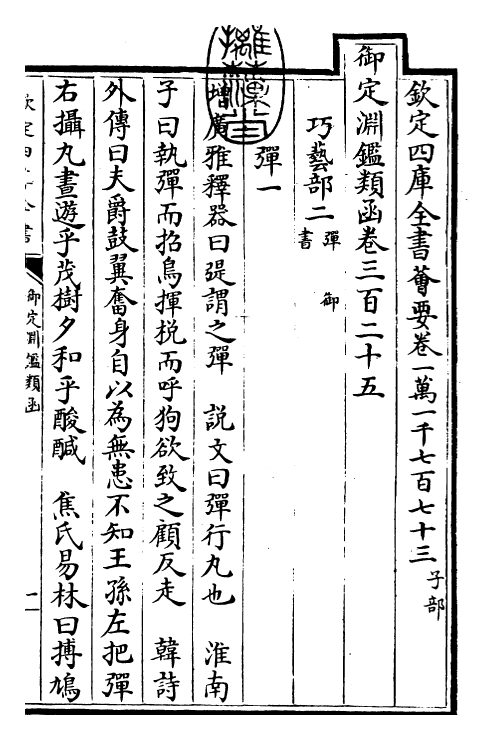 欽定四庫全書薈要卷一萬一千七百七十三 子部
御定淵鑑類函卷三百二十五
巧藝部二 彈 御 書
彈一
增廣雅釋器曰弾謂之彈 說文曰彈行丸也 淮南
子曰執彈而招鳥揮梲而呼狗欲致之顧反走 韓詩
外傳曰夫爵鼓翼奮身自以為無患不知王孫左把彈
右攝丸晝遊乎茂樹夕和乎酸醎 焦氏易林曰搏鳩
御定淵鑑類函
一